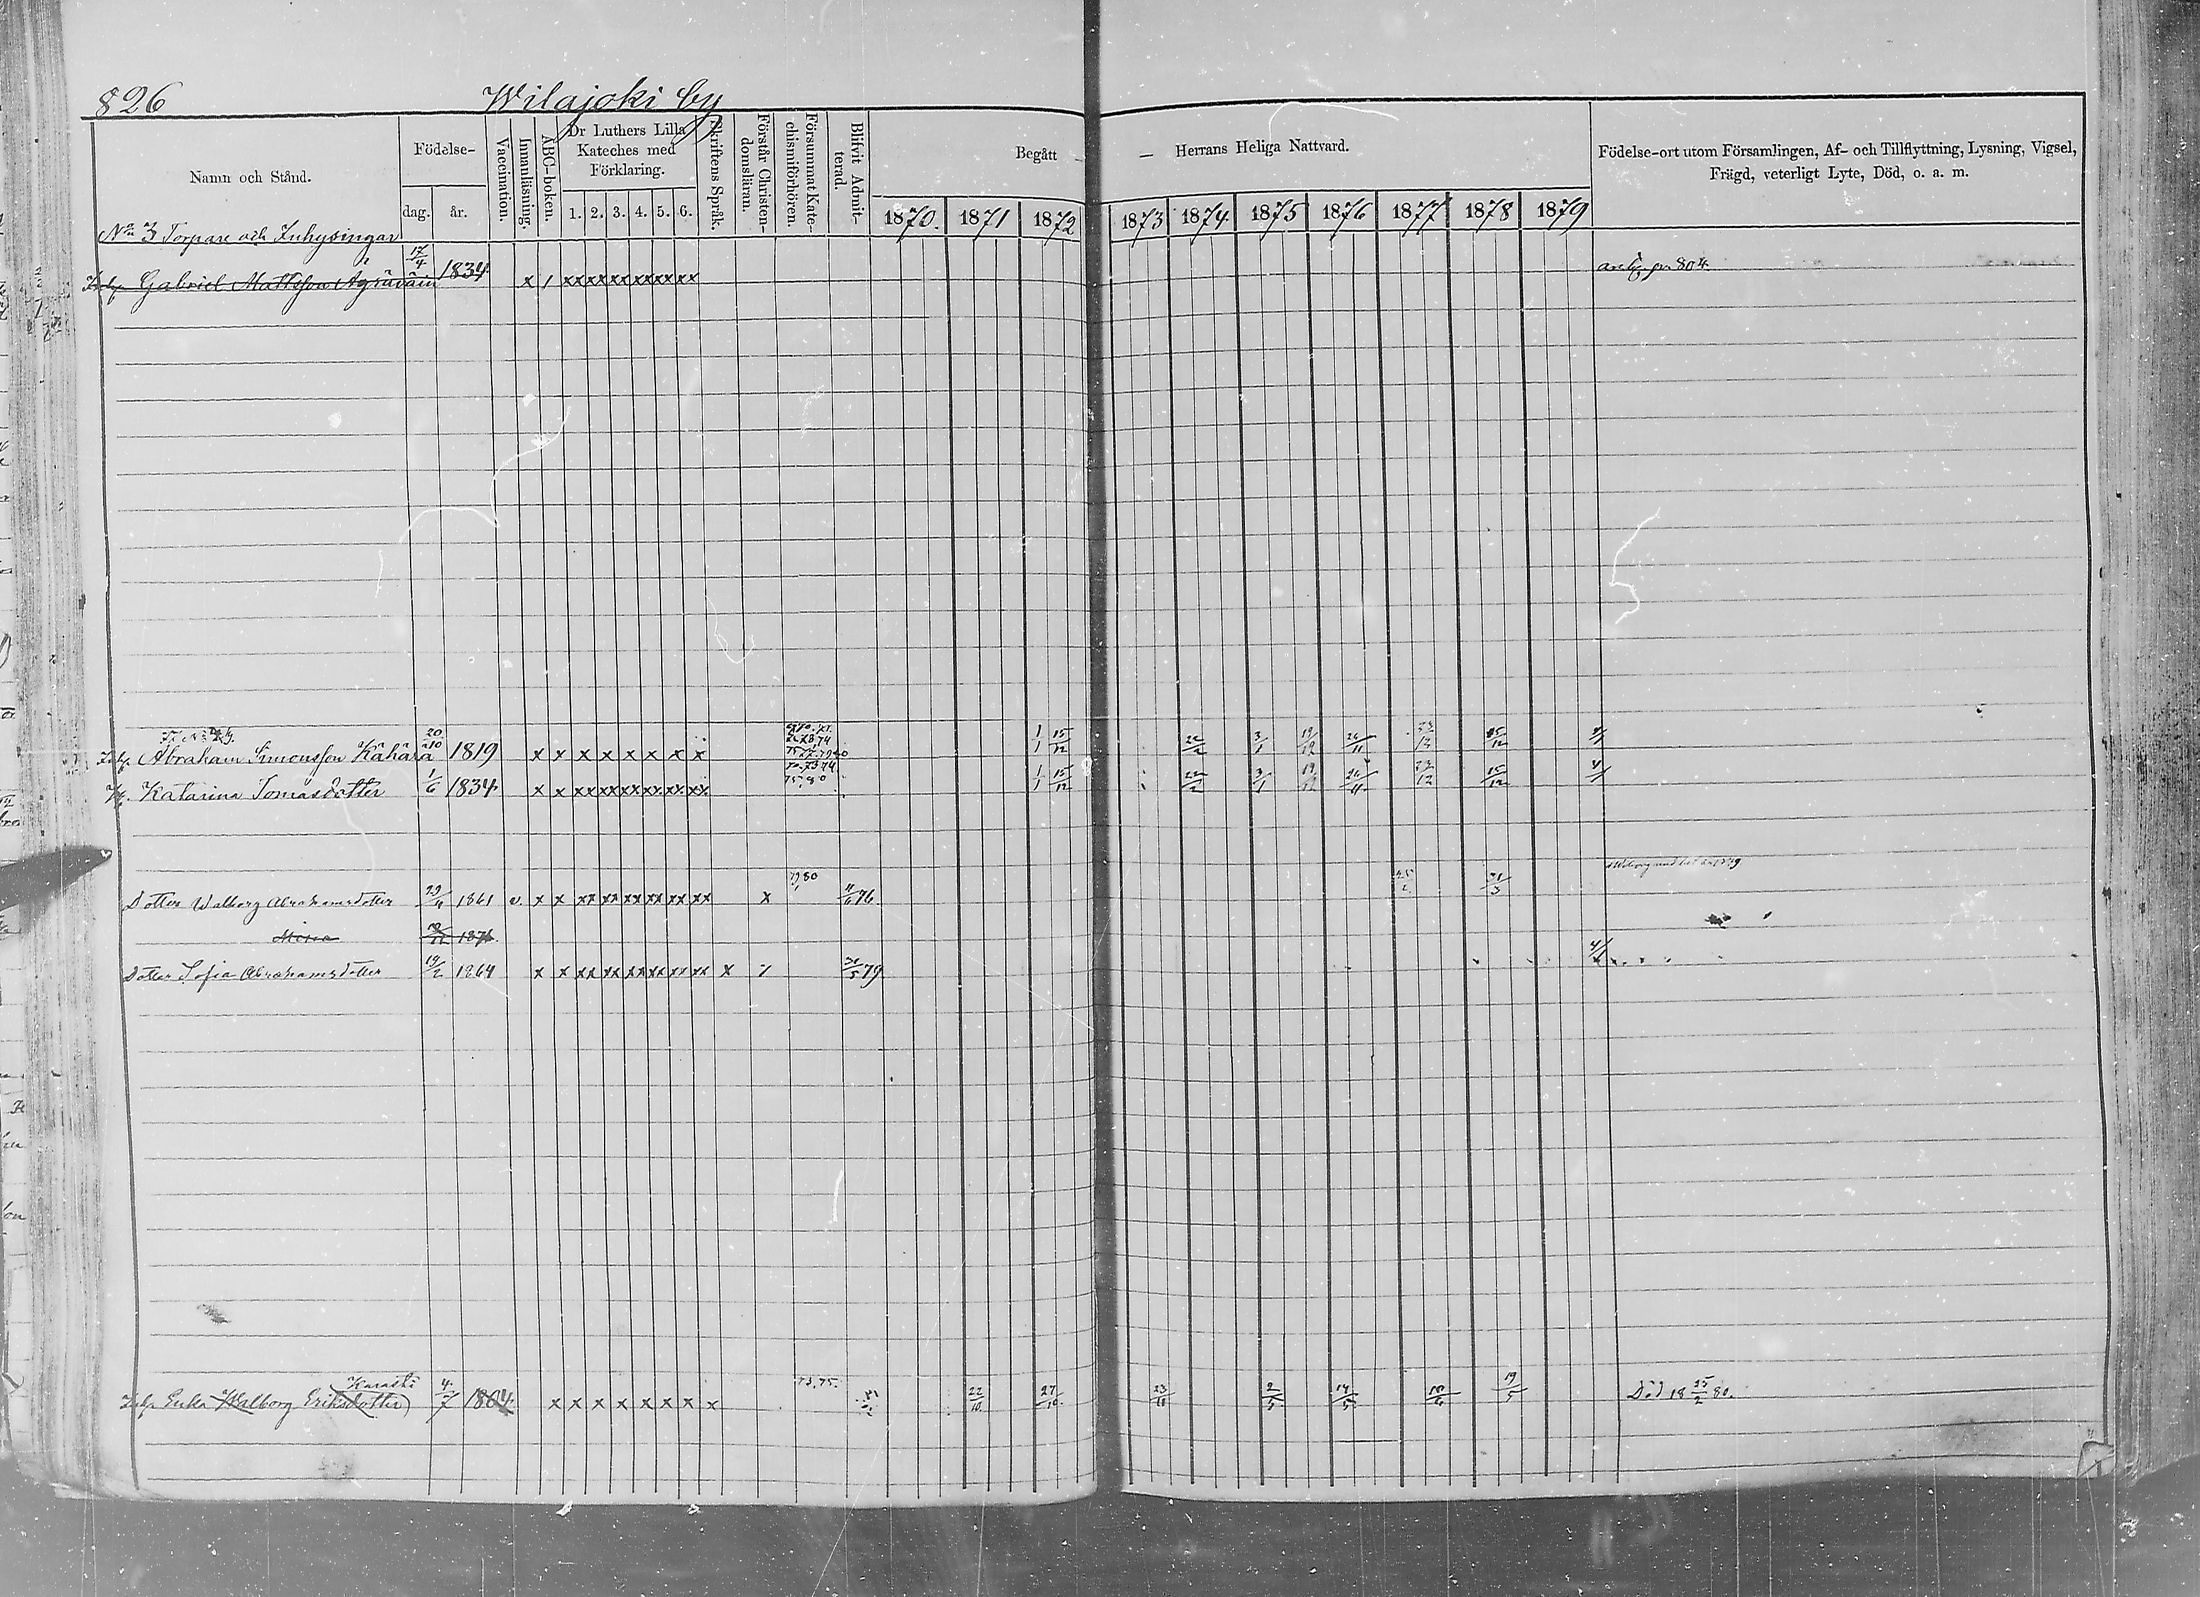 826 Wilajoki by
Namn och Stånd.
Födelse-
dag. år.
Vaccination.
Innanläsning.
ABC-boken.
Dr Luthers Lilla
Kateches med
Förklaring.
1. 2. 3. 4. 5. 6.
Skriftens Språk.
Förstår Christen-
domsläran.
Försummat Kate-
chismiförhören.
Blifvit Admit-
terad.
Begått — — Herrans Heliga Nattvard.
1870. 1871 1872 1873 1874 1875 1876 1877 1878 1879
Födelse-ort utom Församlingen, Af- och Tillflyttning, Lysning, Vigsel,
Frägd, veterligt Lyte, Död, o. a. m.
No 3 Torpare och Inhysingar
Inh. Gabriel Mattsson Ägräväin 17/4 1834 x / xx xx xx xx xx xx
Inh. Abraham Simonsson Kähärä 20/10 1819 x x x x x x x x 1/1 15/12 22/2 3/1 19/12 26/11 23/12 15/12
H. Katarina Tomasdotter 1/6 1834 x x xx xx xx xx xx xx 1/1 15/12 22/2 3/1 19/12 26/11 23/12 15/12
Dotter Walborg Abrahamsdotter 1861 v. x x xx xx xx xx xx xx x 79 80 76 31/3
Mina
Dotter Sofia Abrahamsdotter 19/2 1864 x x xx xx xx xx xx xx x 79
Karaski
Inh. Enka Walborg Eriksdotter 4/7 1804 x x x x x x x x 73. 75. 22/10 27/10 2/5 14/5 19/5 Död 18 25/2 80.